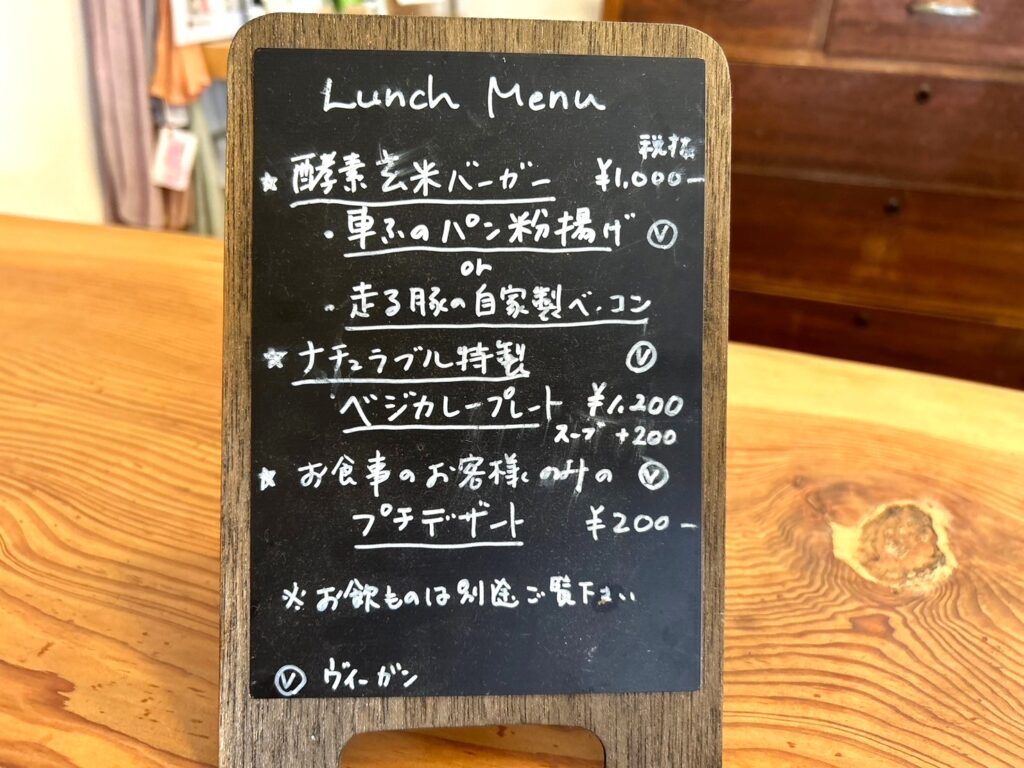 Lunch Menu
税抜
★ 酵素玄米バーガー ¥1,000-
・車ふのパン粉揚げ Ⓥ
or
・走る豚の自家製ベーコン
★ ナチュラブル特製 Ⓥ
ベジカレープレート ¥1,200
スープ +200
★ お食事のお客様のみの Ⓥ
プチデザート ¥200-
※お飲ものは別途ご覧下さい
Ⓥ ヴィーガン